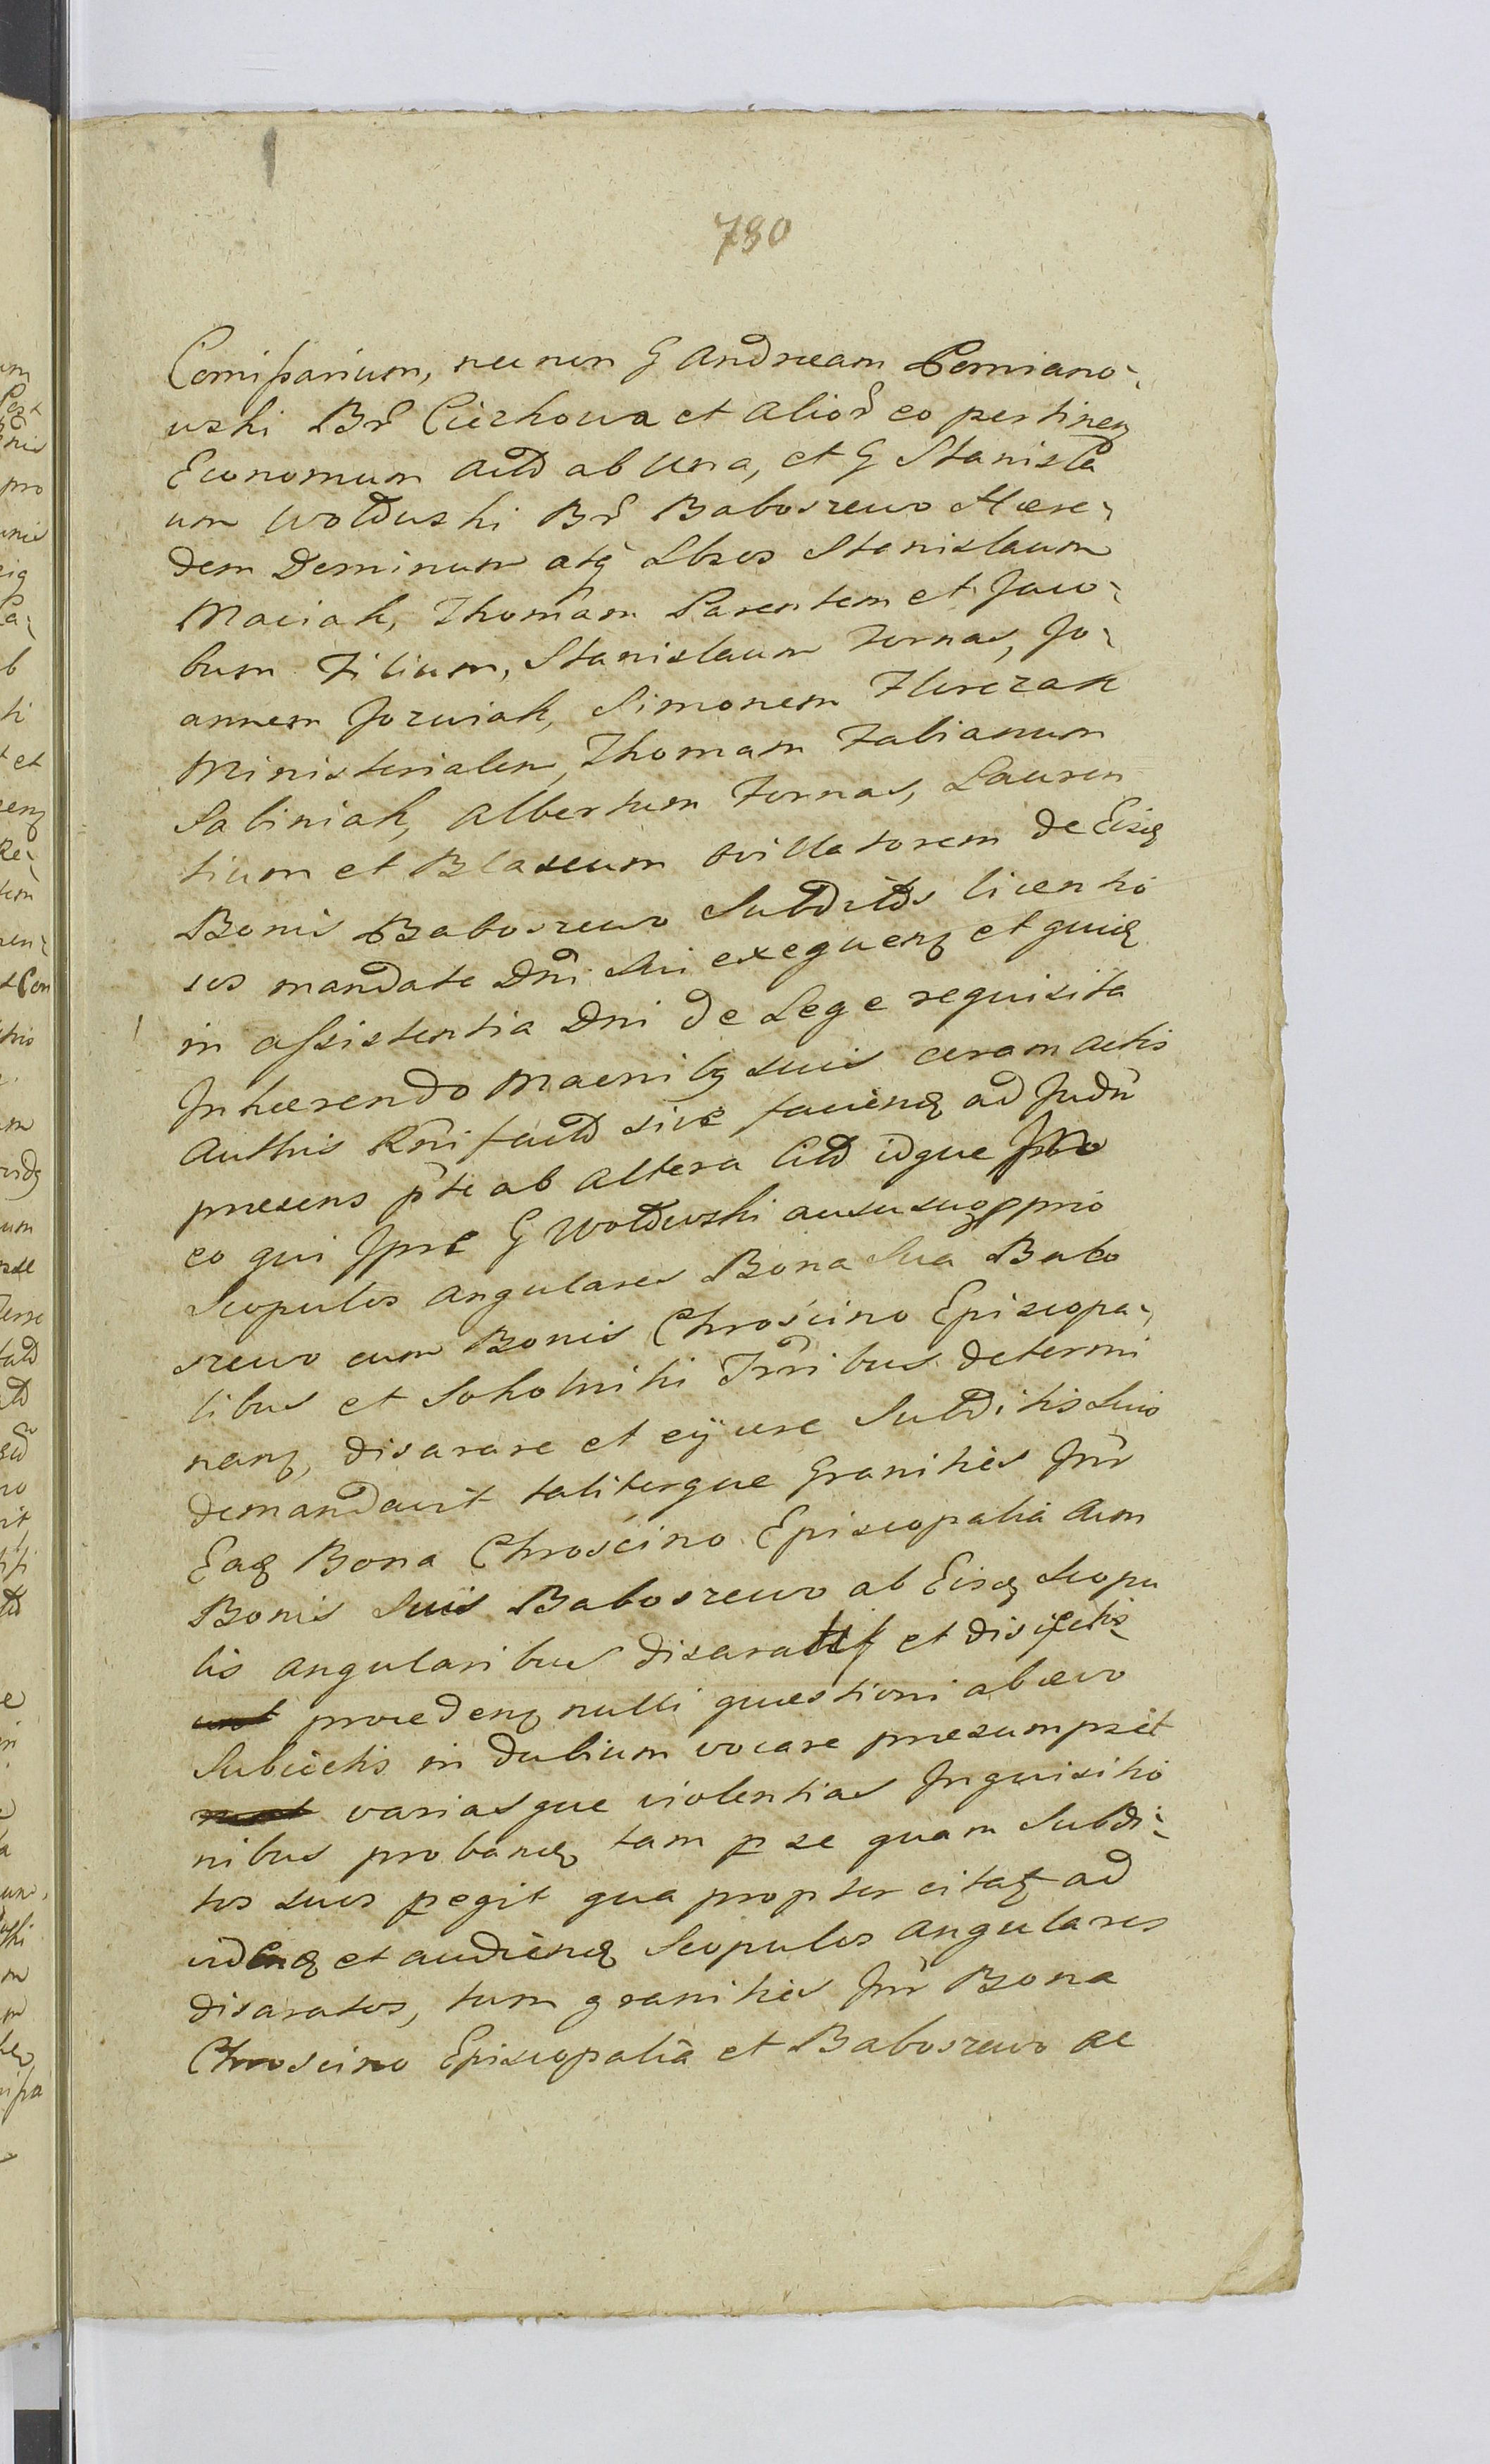 780
Comissarium, nec non G Andream Pomiano-
wski Br̃ Cieckowa et alior̃ eo pertineñ
Economum actã ab una, et G Stanisla
um Woldwski Br̃ Babosrewo Hære-
dem Dominum atq̃ Lbros Stanislaum
Maciak, Thomam Parentem et Jaco-
bum Filium, Stanislaum Fornas, Jo-
annem Jozwiak, Simonem
Ministerialem, Thomam Fabianum
Sabiniak, Albertum Fornas, Lauren
tium et Blasium ovillatorem de Eisd̃
Bonis Babosrewo Subditos licentio
sos mandata Dni sui exequeñ et quid̃
in assistentia Dni de Lege requisita
Inhærendo suis coram actis
Authis Rñi factã sive faciend̃ ad Judm̃
præsens p̃te ab altera Citã idque
eo qui Ipse G Woldwski ausu suo pprio
Scopulos angulares Bona Sua Babo
srewo cum Bonis Chrościno Episcopa-
libus et Sokolniki Trr̃ibus determi
nanz, disarare et eijcere Subditis Suis
demandavit talitergue Granities Intr̃
Ead̃ Bona Chrościno Episcopalia cum
Bonis Suis Babosrewo ab Eisd̃ Scopu
lis angularibus disaratis et disiectis
procedenz nulli quæstioni ab ævo
Subiectis in dubium vocare præsumpsit
variasque violentias Inquisitio
nibus proband̃ tam p se quam Subdi-
tos suos pegit qua propter citat̃ ad
vidend̃ et audiend̃ Scopulos angulares
disaratos, tum granities Intr̃ Bona
Chroscino Episcopalia et Babosrewo ac